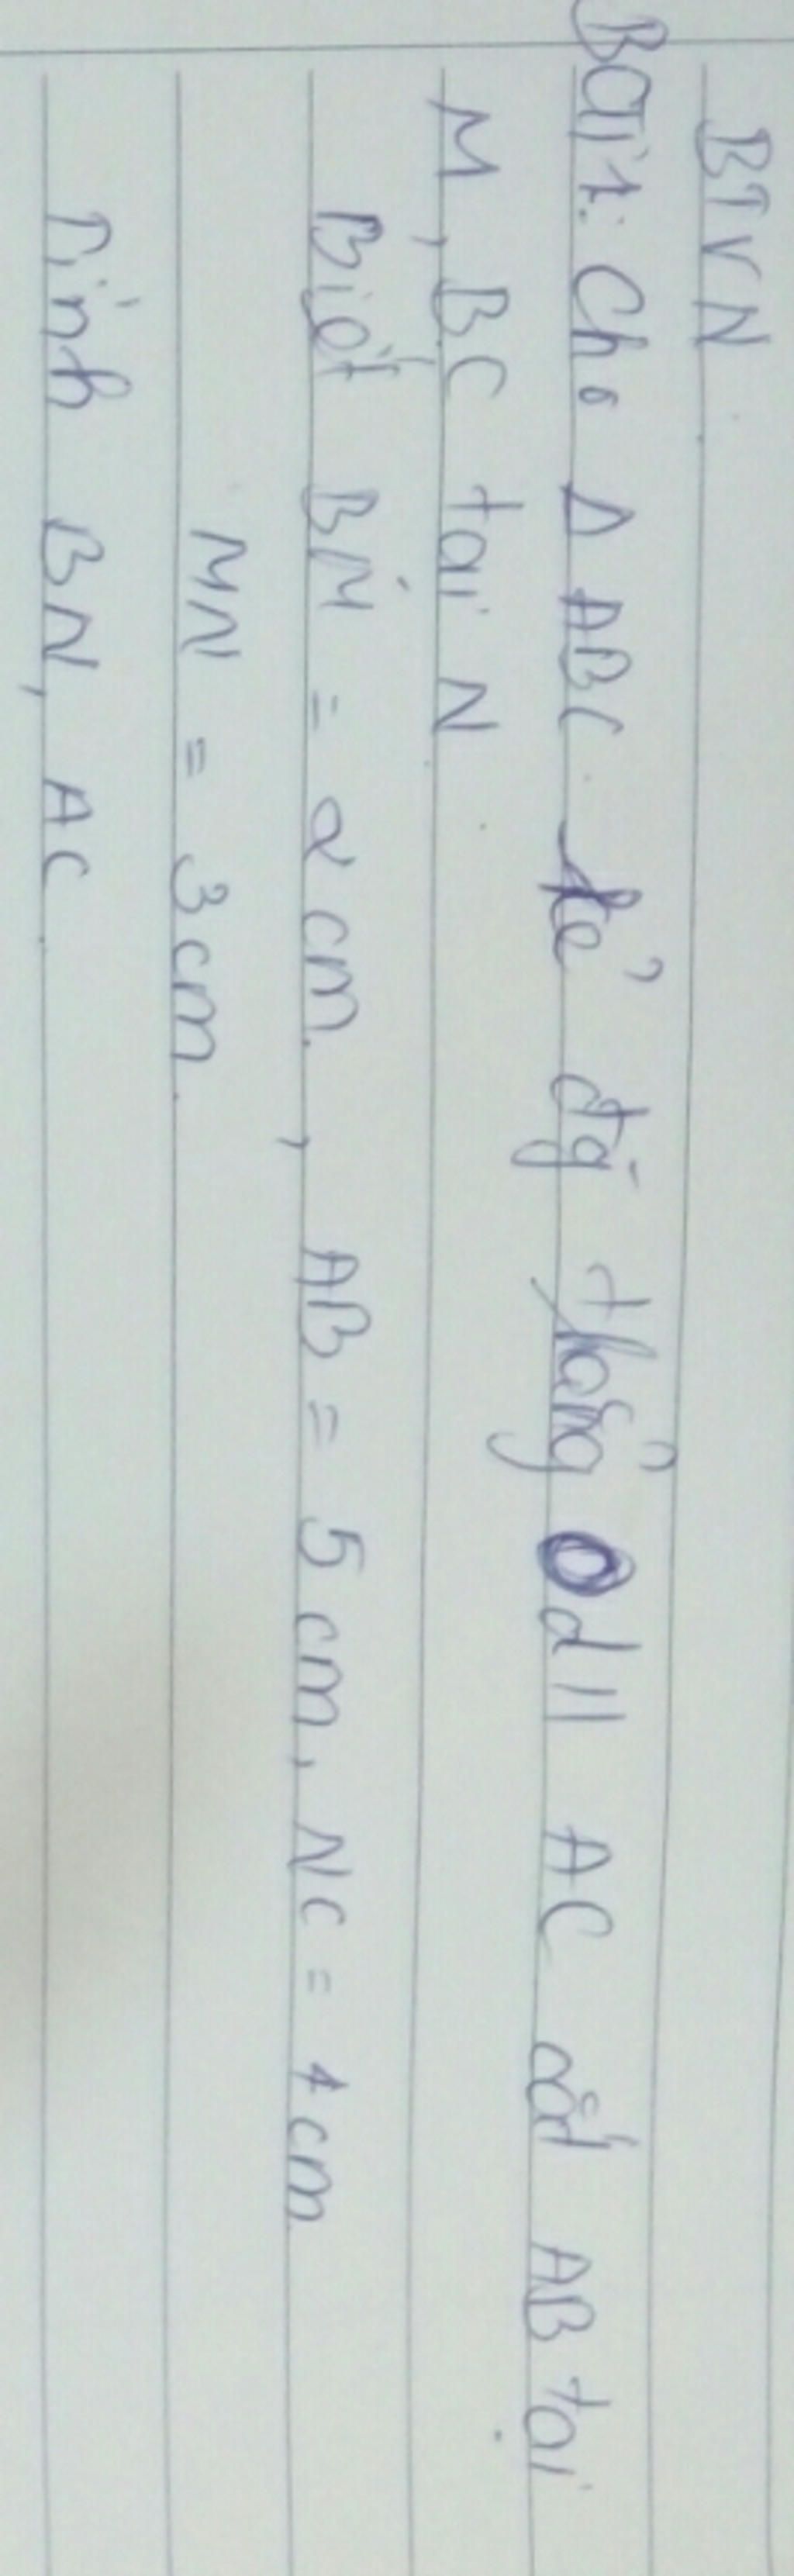 BTVN
Bài 1: Cho Δ ABC kẻ đg thẳng d // AC cắt AB tại
M, BC tại N
Biết BM = 2 cm, AB = 5 cm, NC = 4 cm
MN = 3 cm.
Tính BN, AC